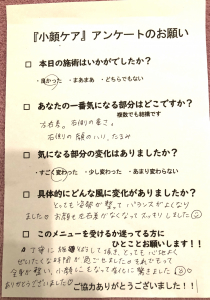 『小顔ケア』アンケートのお願い
□ 本日の施術はいかがでしたか？
・良かった ・まあまあ ・どちらでもない
□ あなたの一番気になる部分はどこですか？
複数でも結構です
左右差。右側の重さ。
右側の頬のハリ、たるみ
□ 気になる部分の変化はありましたか？
・すごく変わった ・少し変わった ・あまり変わらない
□ 具体的にどんな風に変化がありましたか？
とっても姿勢が整って バランスがよくなり
ました。お顔も左右差がなくなってスッキリしました
□ このメニューを受けるか迷ってる方に
ひとことお願いします！！
丁寧に 説明して頂き、とっても心地よく
ぜいたくな時間が過ごせました。
全身が整い、小顔にもなって
ありがとうございました
ご協力ありがとうございました！！